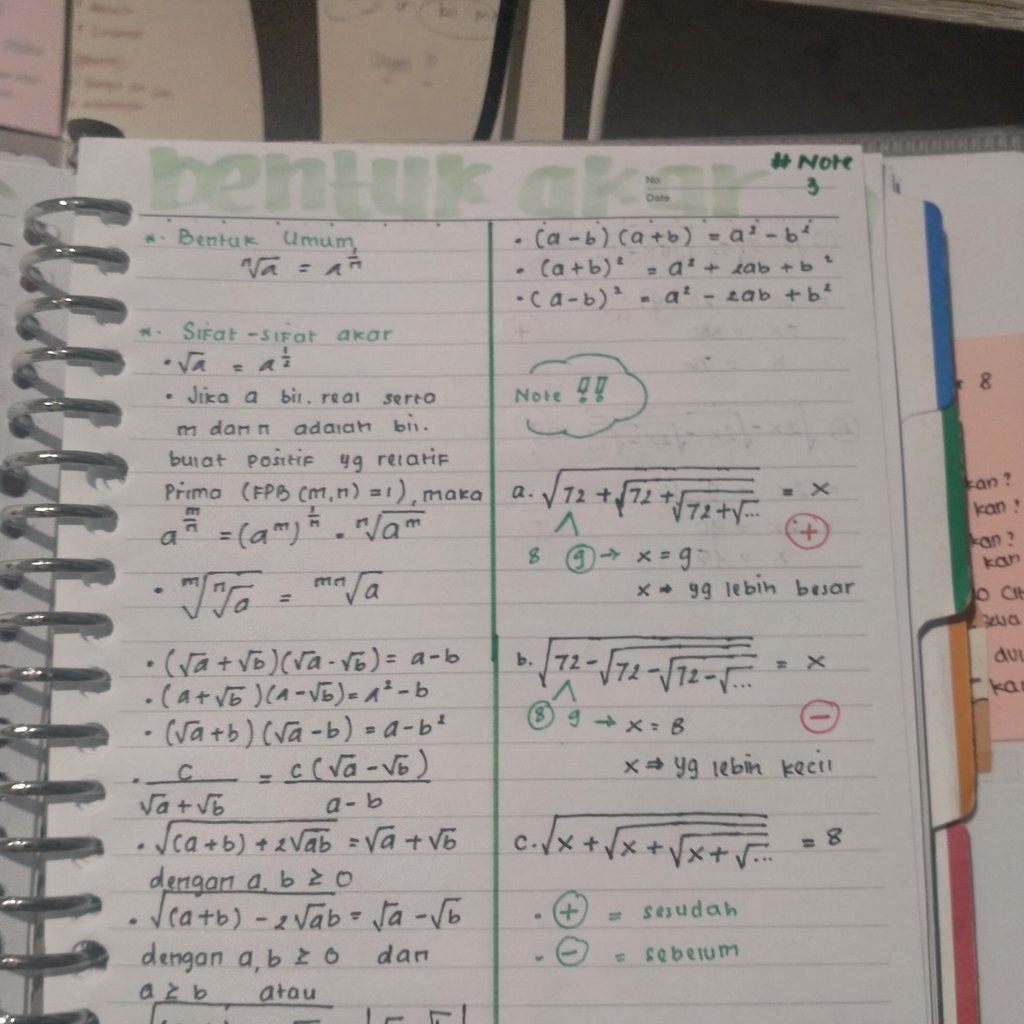 bentuk akar
# Note 3
No
Date
*. Bentuk Umum
ⁿ√a = a^(1/n)
*. Sifat-sifat akar
• √a = a^(1/2)
• Jika a bil. real serta
m dan n adalah bil.
bulat positif yg relatif
Prima (FPB (m,n) = 1), maka
a^(m/n) = (a^m)^(1/n) = ⁿ√(a^m)
• ᵐ√(ⁿ√a) = ᵐⁿ√a
• (√a + √b)(√a - √b) = a - b
• (a + √b)(a - √b) = a² - b
• (√a + b)(√a - b) = a - b²
• c/(√a + √b) = c(√a - √b)/(a - b)
• √((a+b) + 2√ab) = √a + √b
dengan a, b ≥ 0
• √((a+b) - 2√ab) = √a - √b
dengan a, b ≥ 0 dan
a ≥ b atau
• (a - b)(a + b) = a² - b²
• (a + b)² = a² + 2ab + b²
• (a - b)² = a² - 2ab + b²
Note !!
a. √(72 + √(72 + √(72 + √...))) = x
8 9 → x = 9
+
x → yg lebih besar
b. √(72 - √(72 - √(72 - √...))) = x
8 9 → x = 8
-
x → yg lebih kecil
c. √(x + √(x + √(x + √...))) = 8
• + = sesudah
• - = sebelum
8
kan?
kan?
kan?
kan
kan